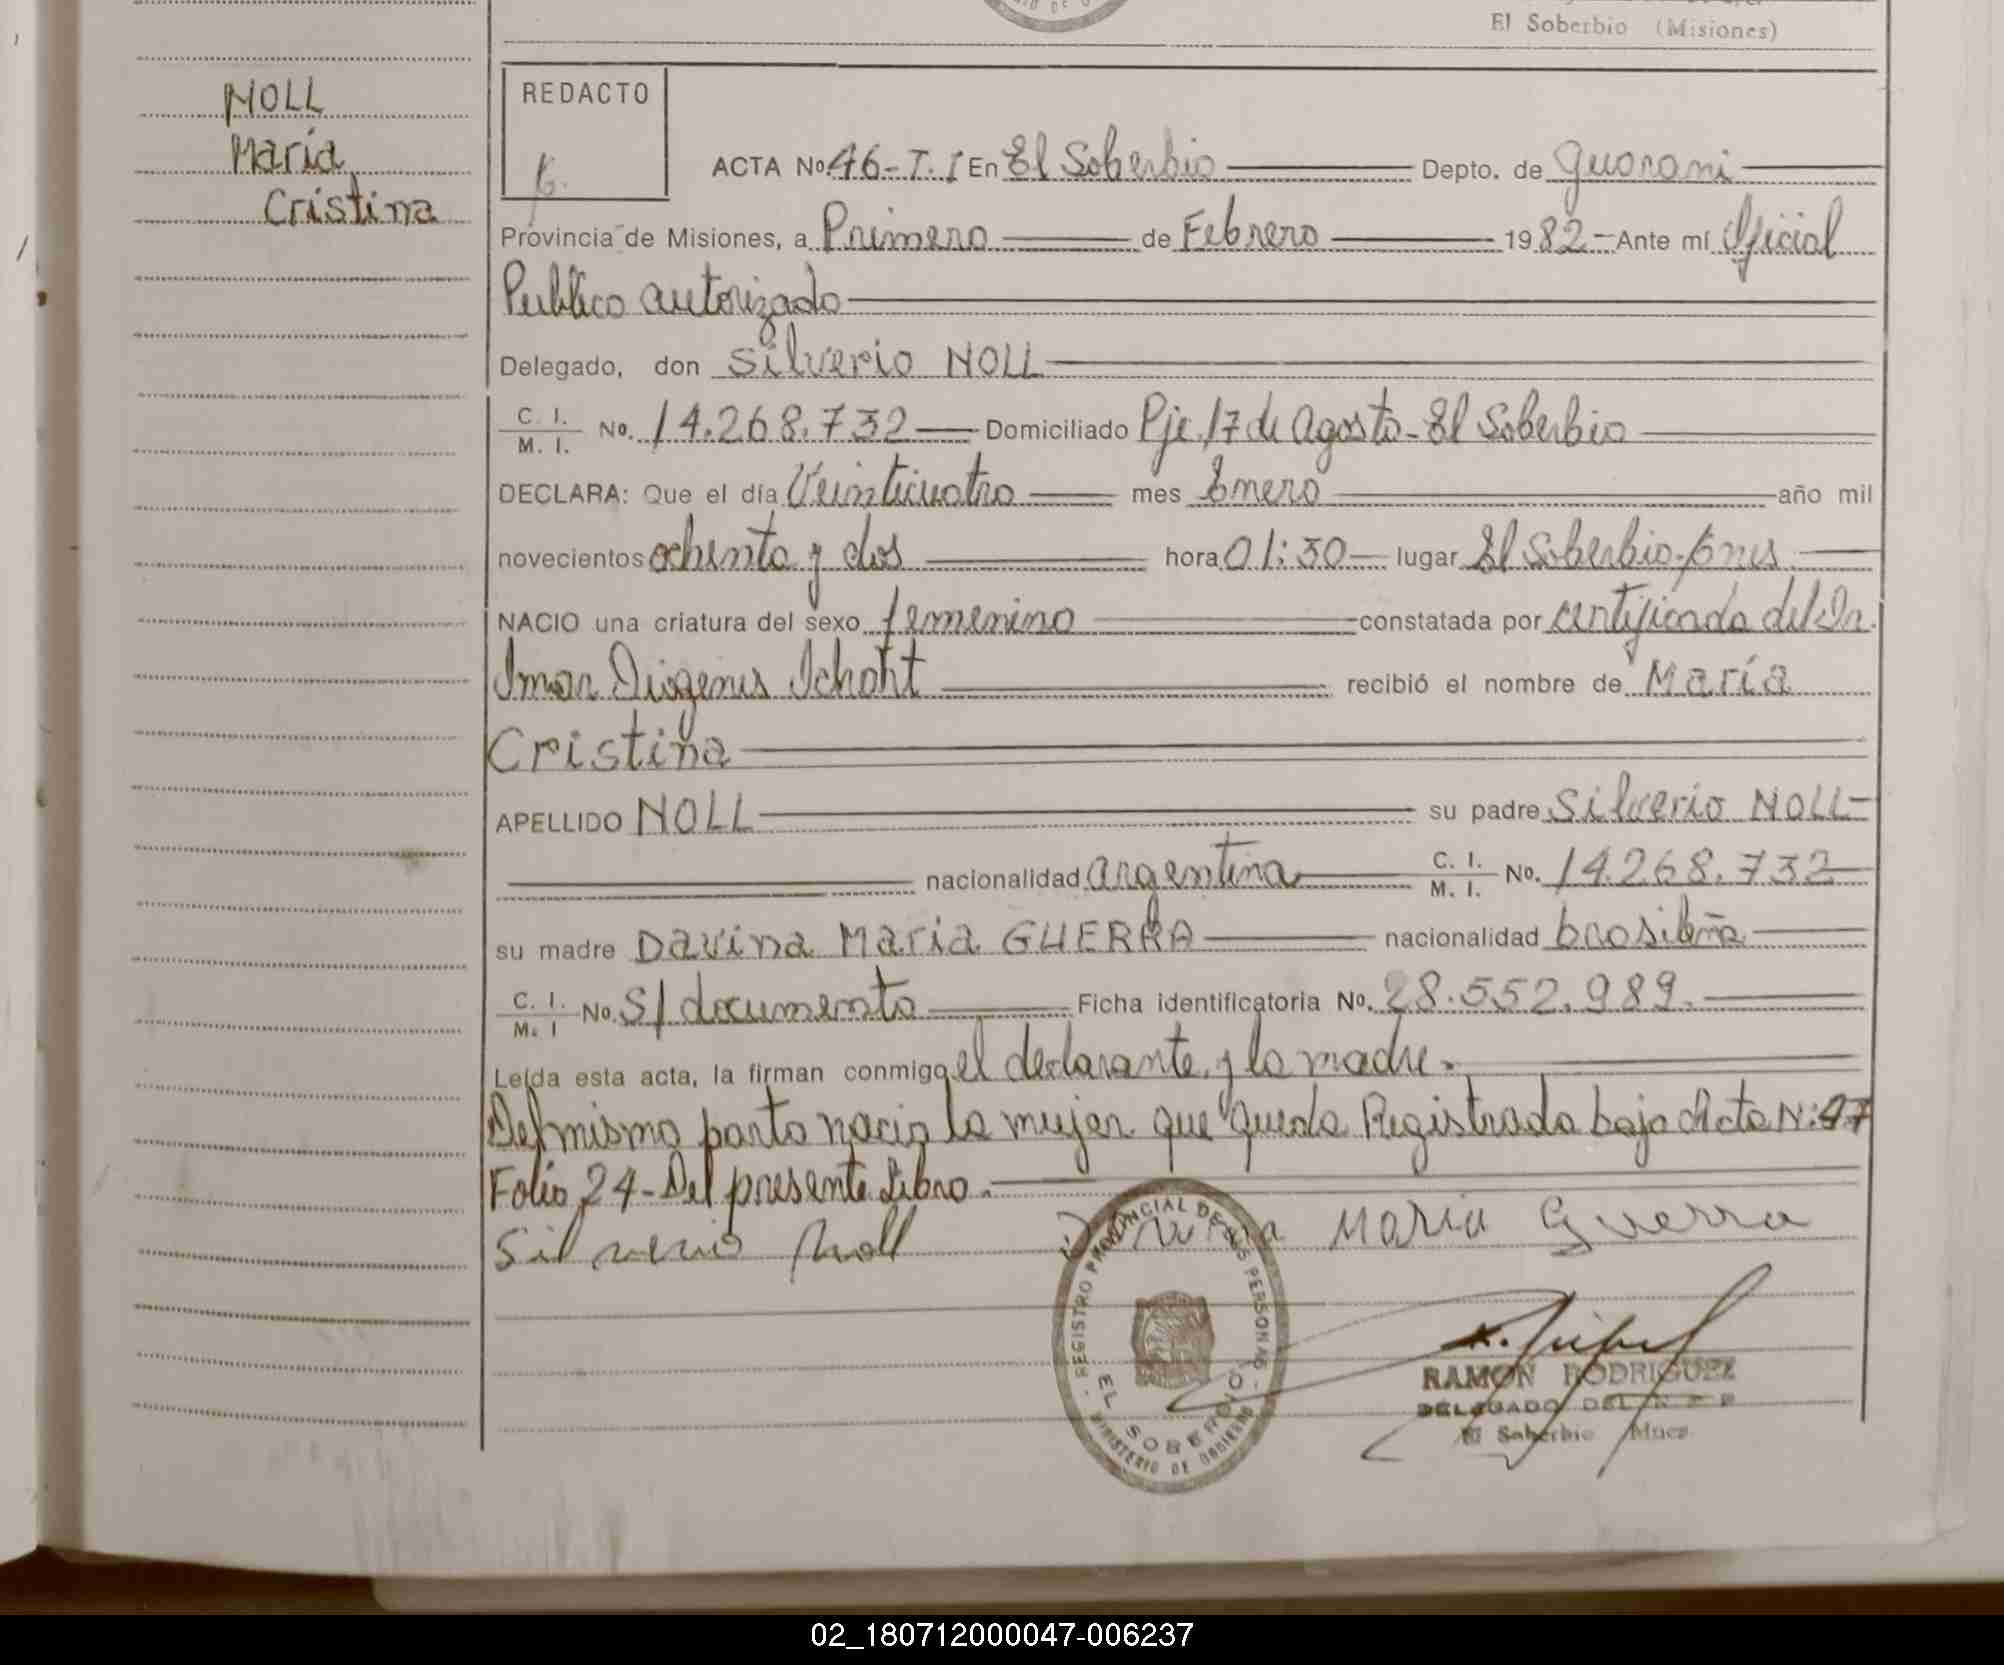 El Soberbio (Misiones)
NOLL
María
Cristina
REDACTO
ACTA No. 46-T. I En El Soberbio Depto. de Guarani
Provincia de Misiones, a Primero de Febrero 1982 Ante mí Oficial
Publico autorizado
Delegado, don Silverio NOLL
C. I.
M. I. No. 14.268.732 Domiciliado Pje. 17 de Agosto - El Soberbio
DECLARA: Que el día Veinticuatro mes Enero año mil
novecientos ochenta y dos hora 01:30 lugar El Soberbio
NACIO una criatura del sexo femenino constatada por certificado del Dr.
Diogenes recibió el nombre de María
Cristina
APELLIDO NOLL su padre Silverio NOLL
nacionalidad argentina C. I.
M. I. No. 14.268.732
su madre Davina Maria GUERRA nacionalidad brasileña
C. I.
M. I No. S/documento Ficha identificatoria No. 28.552.989.
Leída esta acta, la firman conmigo el declarante y la madre.
Del mismo parto nacio la mujer que queda Registrada bajo Acta N: 47
Folio 24 - Del presente Libro.
Silverio Noll Davina Maria Guerra
REGISTRO PROVINCIAL DE LAS PERSONAS
EL SOBERBIO
MINISTERIO DE GOBIERNO
RAMON RODRIGUEZ
DELEGADO DEL R P P
El Soberbio Mnes.
02_180712000047-006237